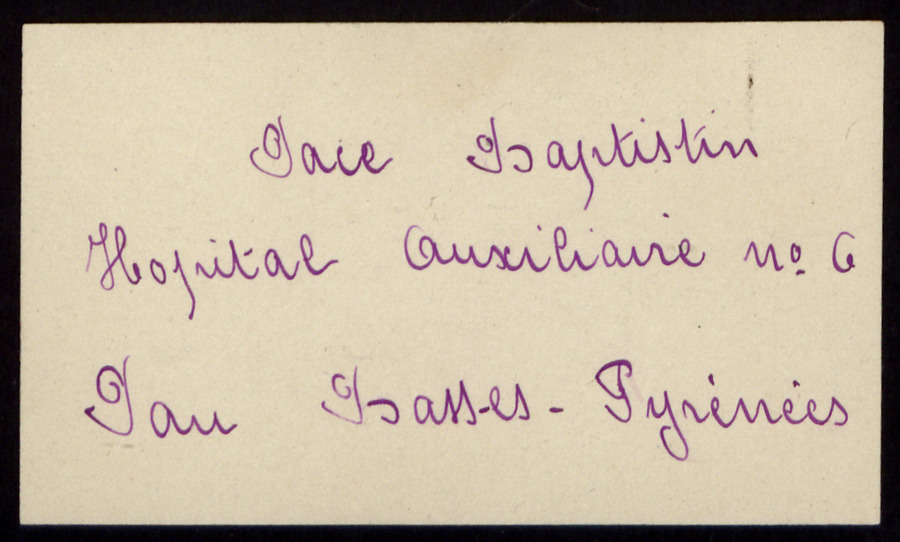 Pace Baptistin
Hopital Auxiliaire no. 6
Pau Basses-Pyrénées